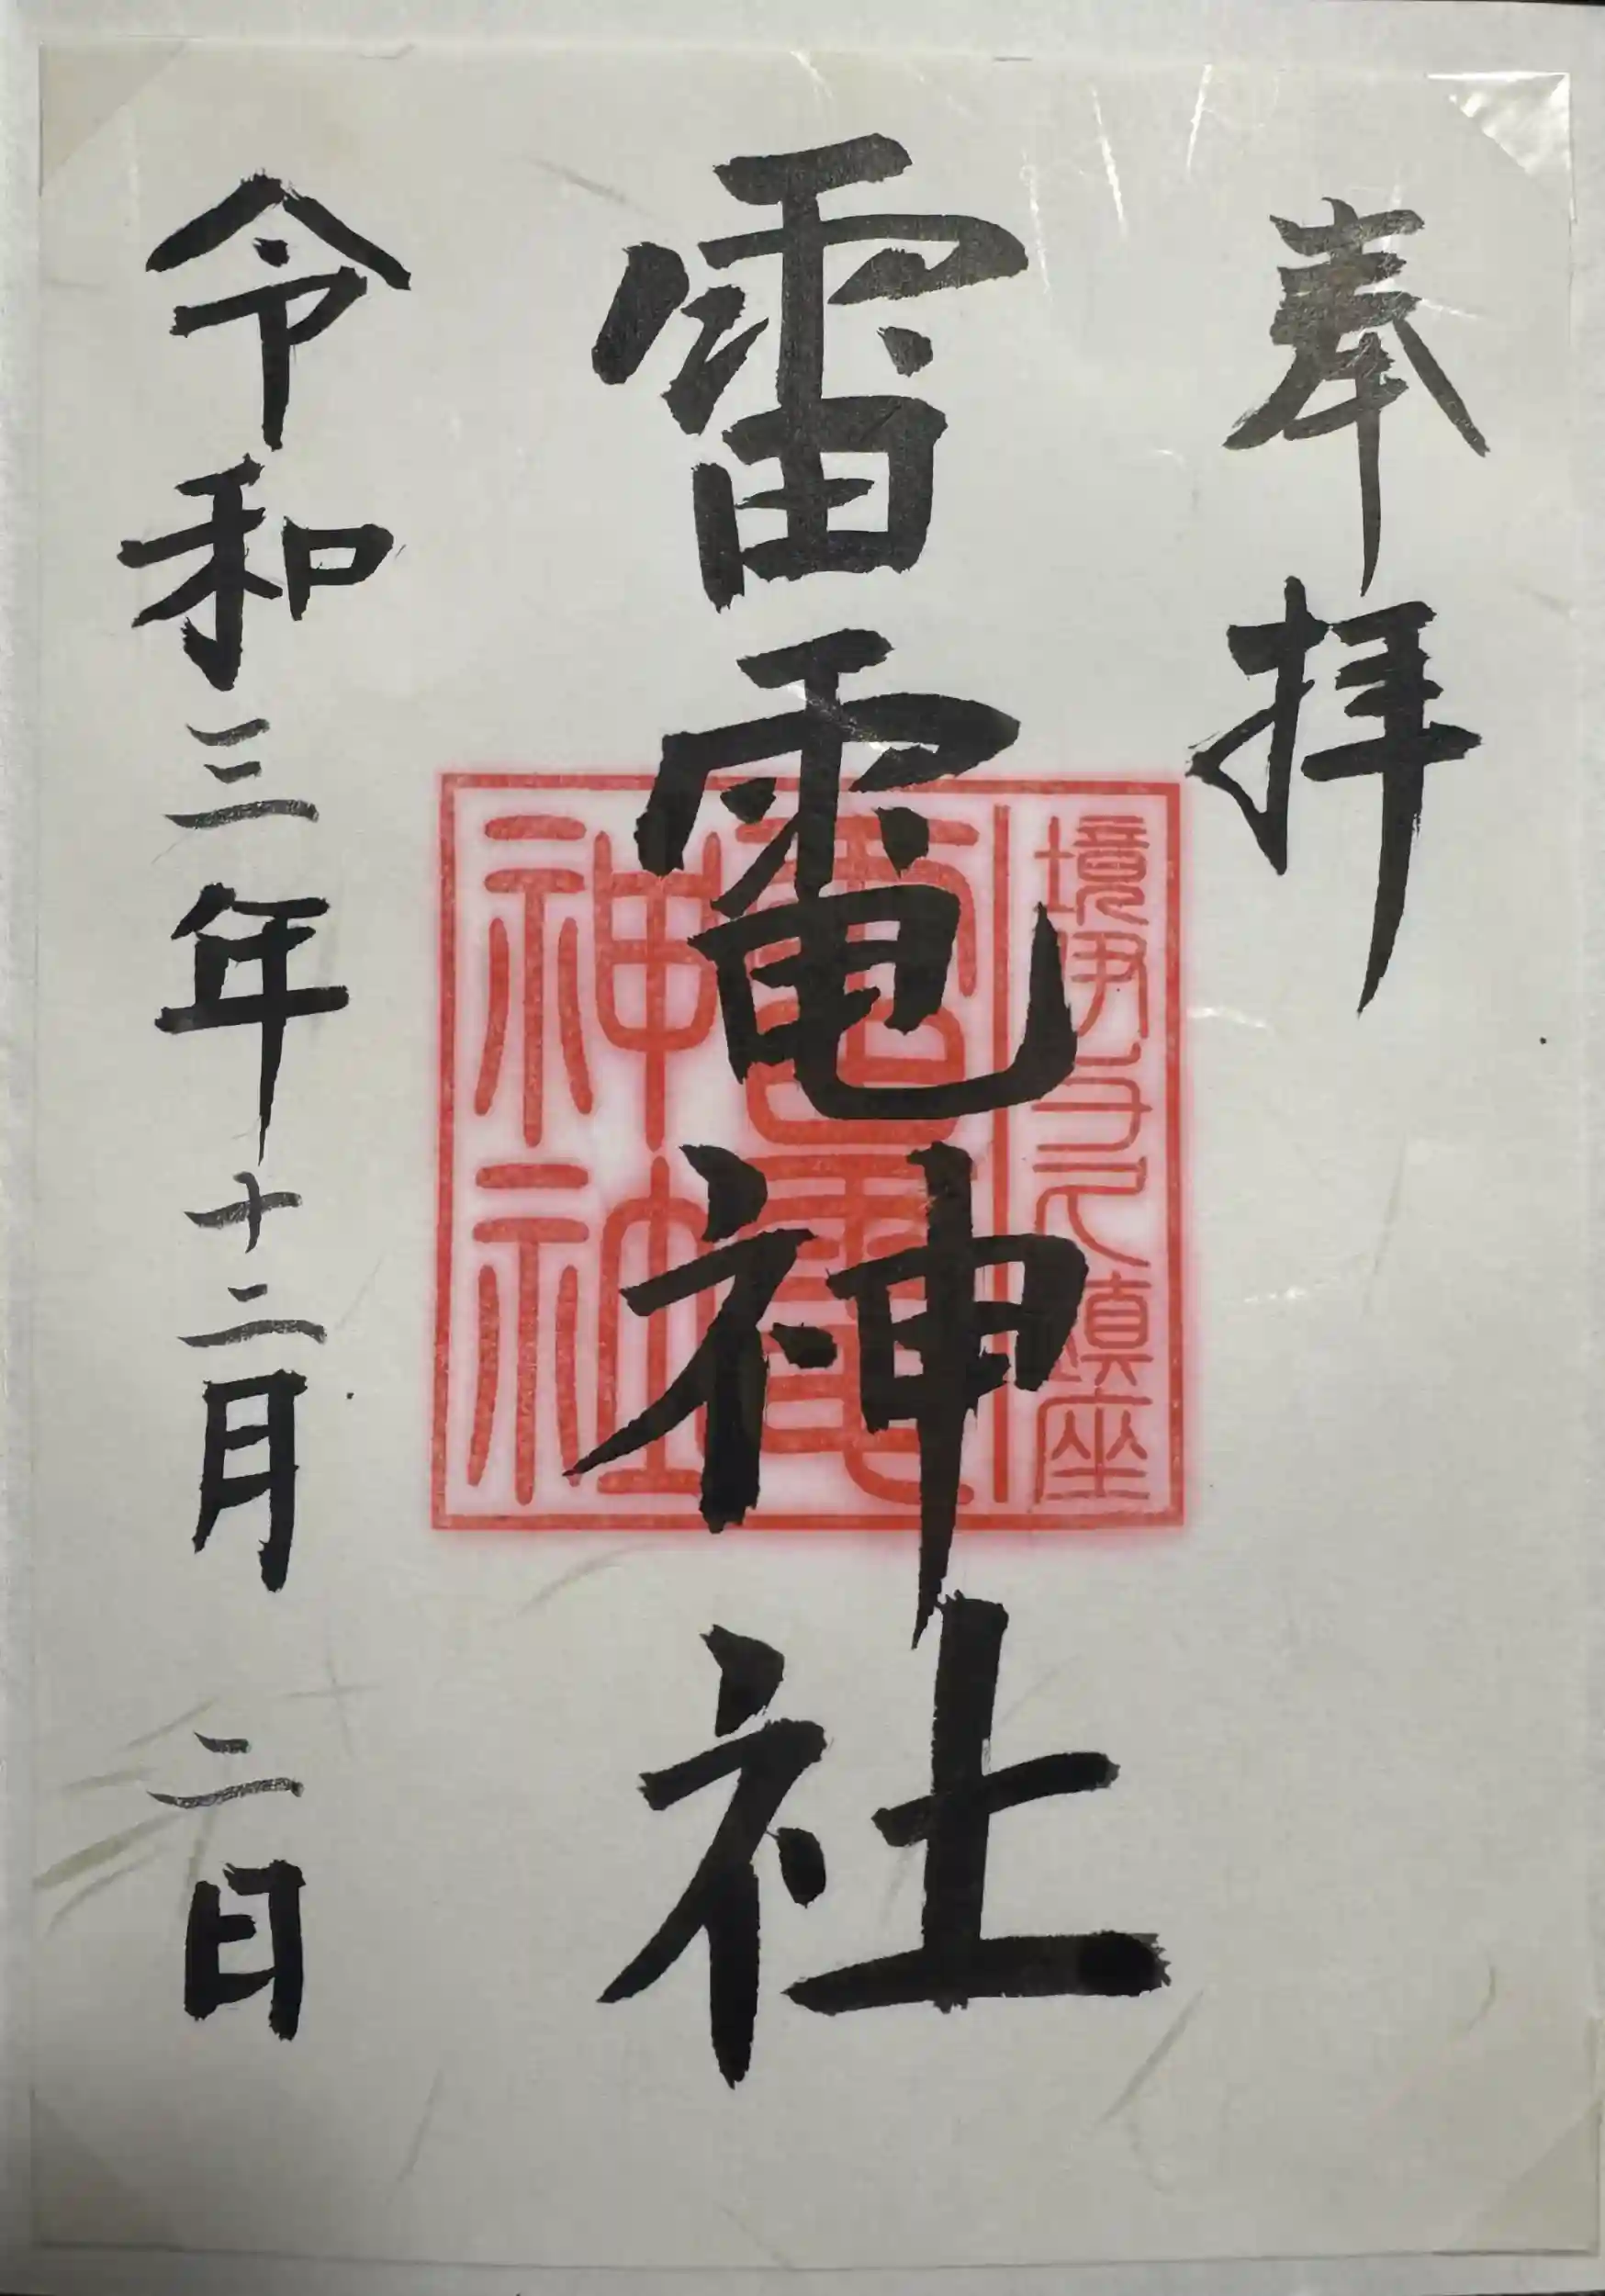 奉拝
雷電神社
境伊与久鎮座
雷電
神社
令和三年十二月二日